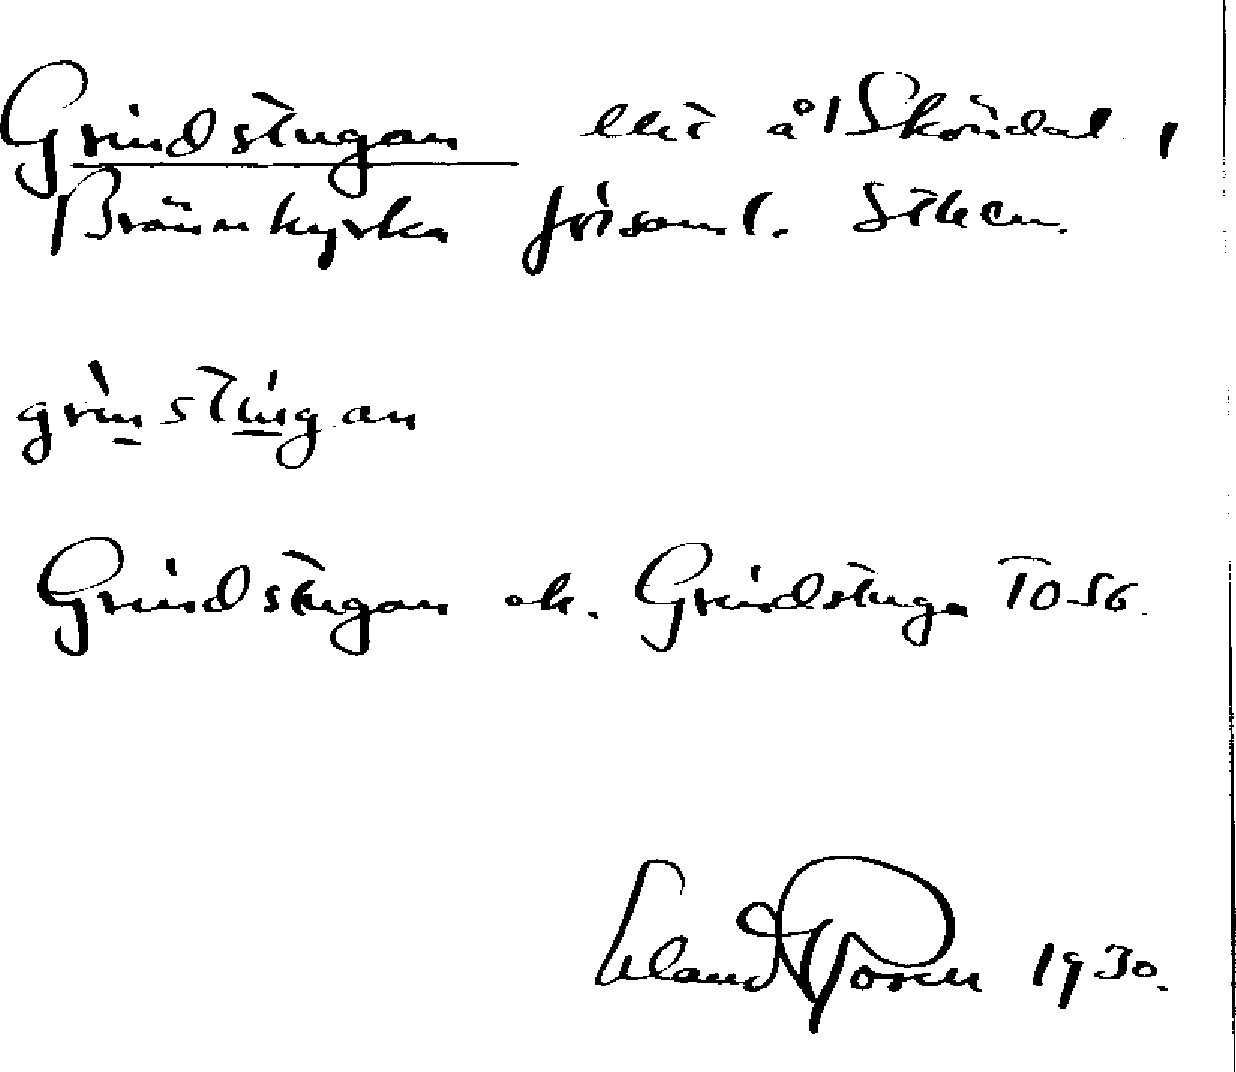 Grindstugan å Sköndal,
Brännkyrka församl. Sthlm.
grinstugan
Grindstugan ek. Grindstuga
Rosén 1930.